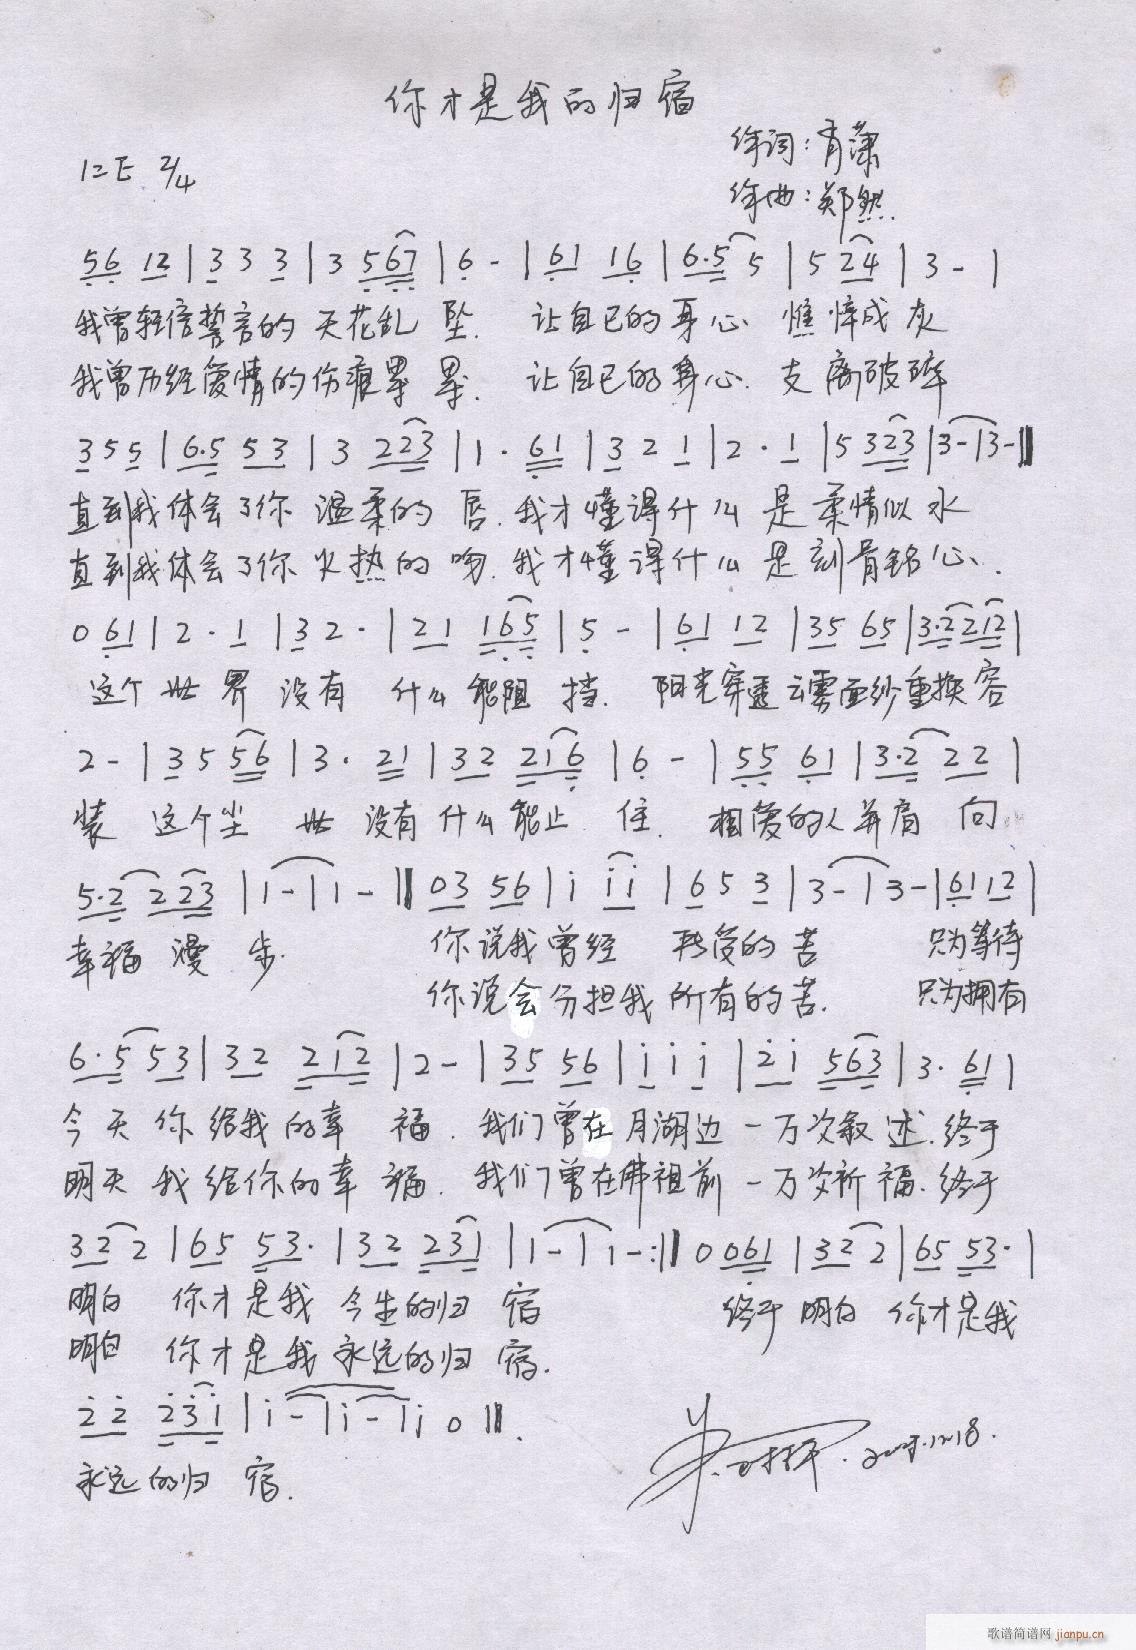 你才是我的归宿
作词：肖潇
1=E 2/4
作曲：郑然
56 12 | 3 3 3 | 3 567 | 6 - | 61 16 | 6·5 5 | 5 24 | 3 - |
我曾轻信誓言的 天花乱 坠. 让自己的身心 憔悴成灰
我曾历经爱情的伤痕累 累. 让自己的身心. 支离破碎
3 5 5 | 6·5 53 | 3 223 | 1 · 61 | 3 2 1 | 2 · 1 | 5 323 | 3 - | 3 - ‖
直到我体会了你 温柔的 唇. 我才懂得什么 是柔情似水
直到我体会了你火热的 吻. 我才懂得什么 是刻骨铭心.
0 61 | 2 · 1 | 3 2 · | 21 165 | 5 - | 61 12 | 35 65 | 3·2 212 |
这个世界 没有 什么能阻 挡. 阳光穿透云雾面纱重换容
2 - | 3 5 56 | 3 · 21 | 32 216 | 6 - | 55 61 | 3·2 22 |
装 这个尘 世 没有什么能止 住. 相爱的人并肩 向
5·2 223 | 1 - | 1 - ‖ 03 56 | i i i | 6 5 3 | 3 - | 3 - | 61 12 |
幸福 漫 步. 你说我曾经 所受的苦 只为等待
你说会分担我所有的苦. 只为拥有
6·5 53 | 32 212 | 2 - | 35 56 | i i i | 2 i 563 | 3 · 61 |
今天 你给我的幸 福. 我们曾在月湖边 一万次叙 述. 终于
明天 我给你的幸 福. 我们曾在佛祖前 一万次祈福. 终于
32 2 | 65 53· | 32 231 | 1 - | 1 - :‖ 0 061 | 32 2 | 65 53· |
明白 你才是我 今生的归 宿 终于 明白 你才是我
明白 你才是我永远的归 宿.
2 2 231 | i - | i - | i 0 ‖
永远的归 宿.
歌谱简谱网 jianpu.cn